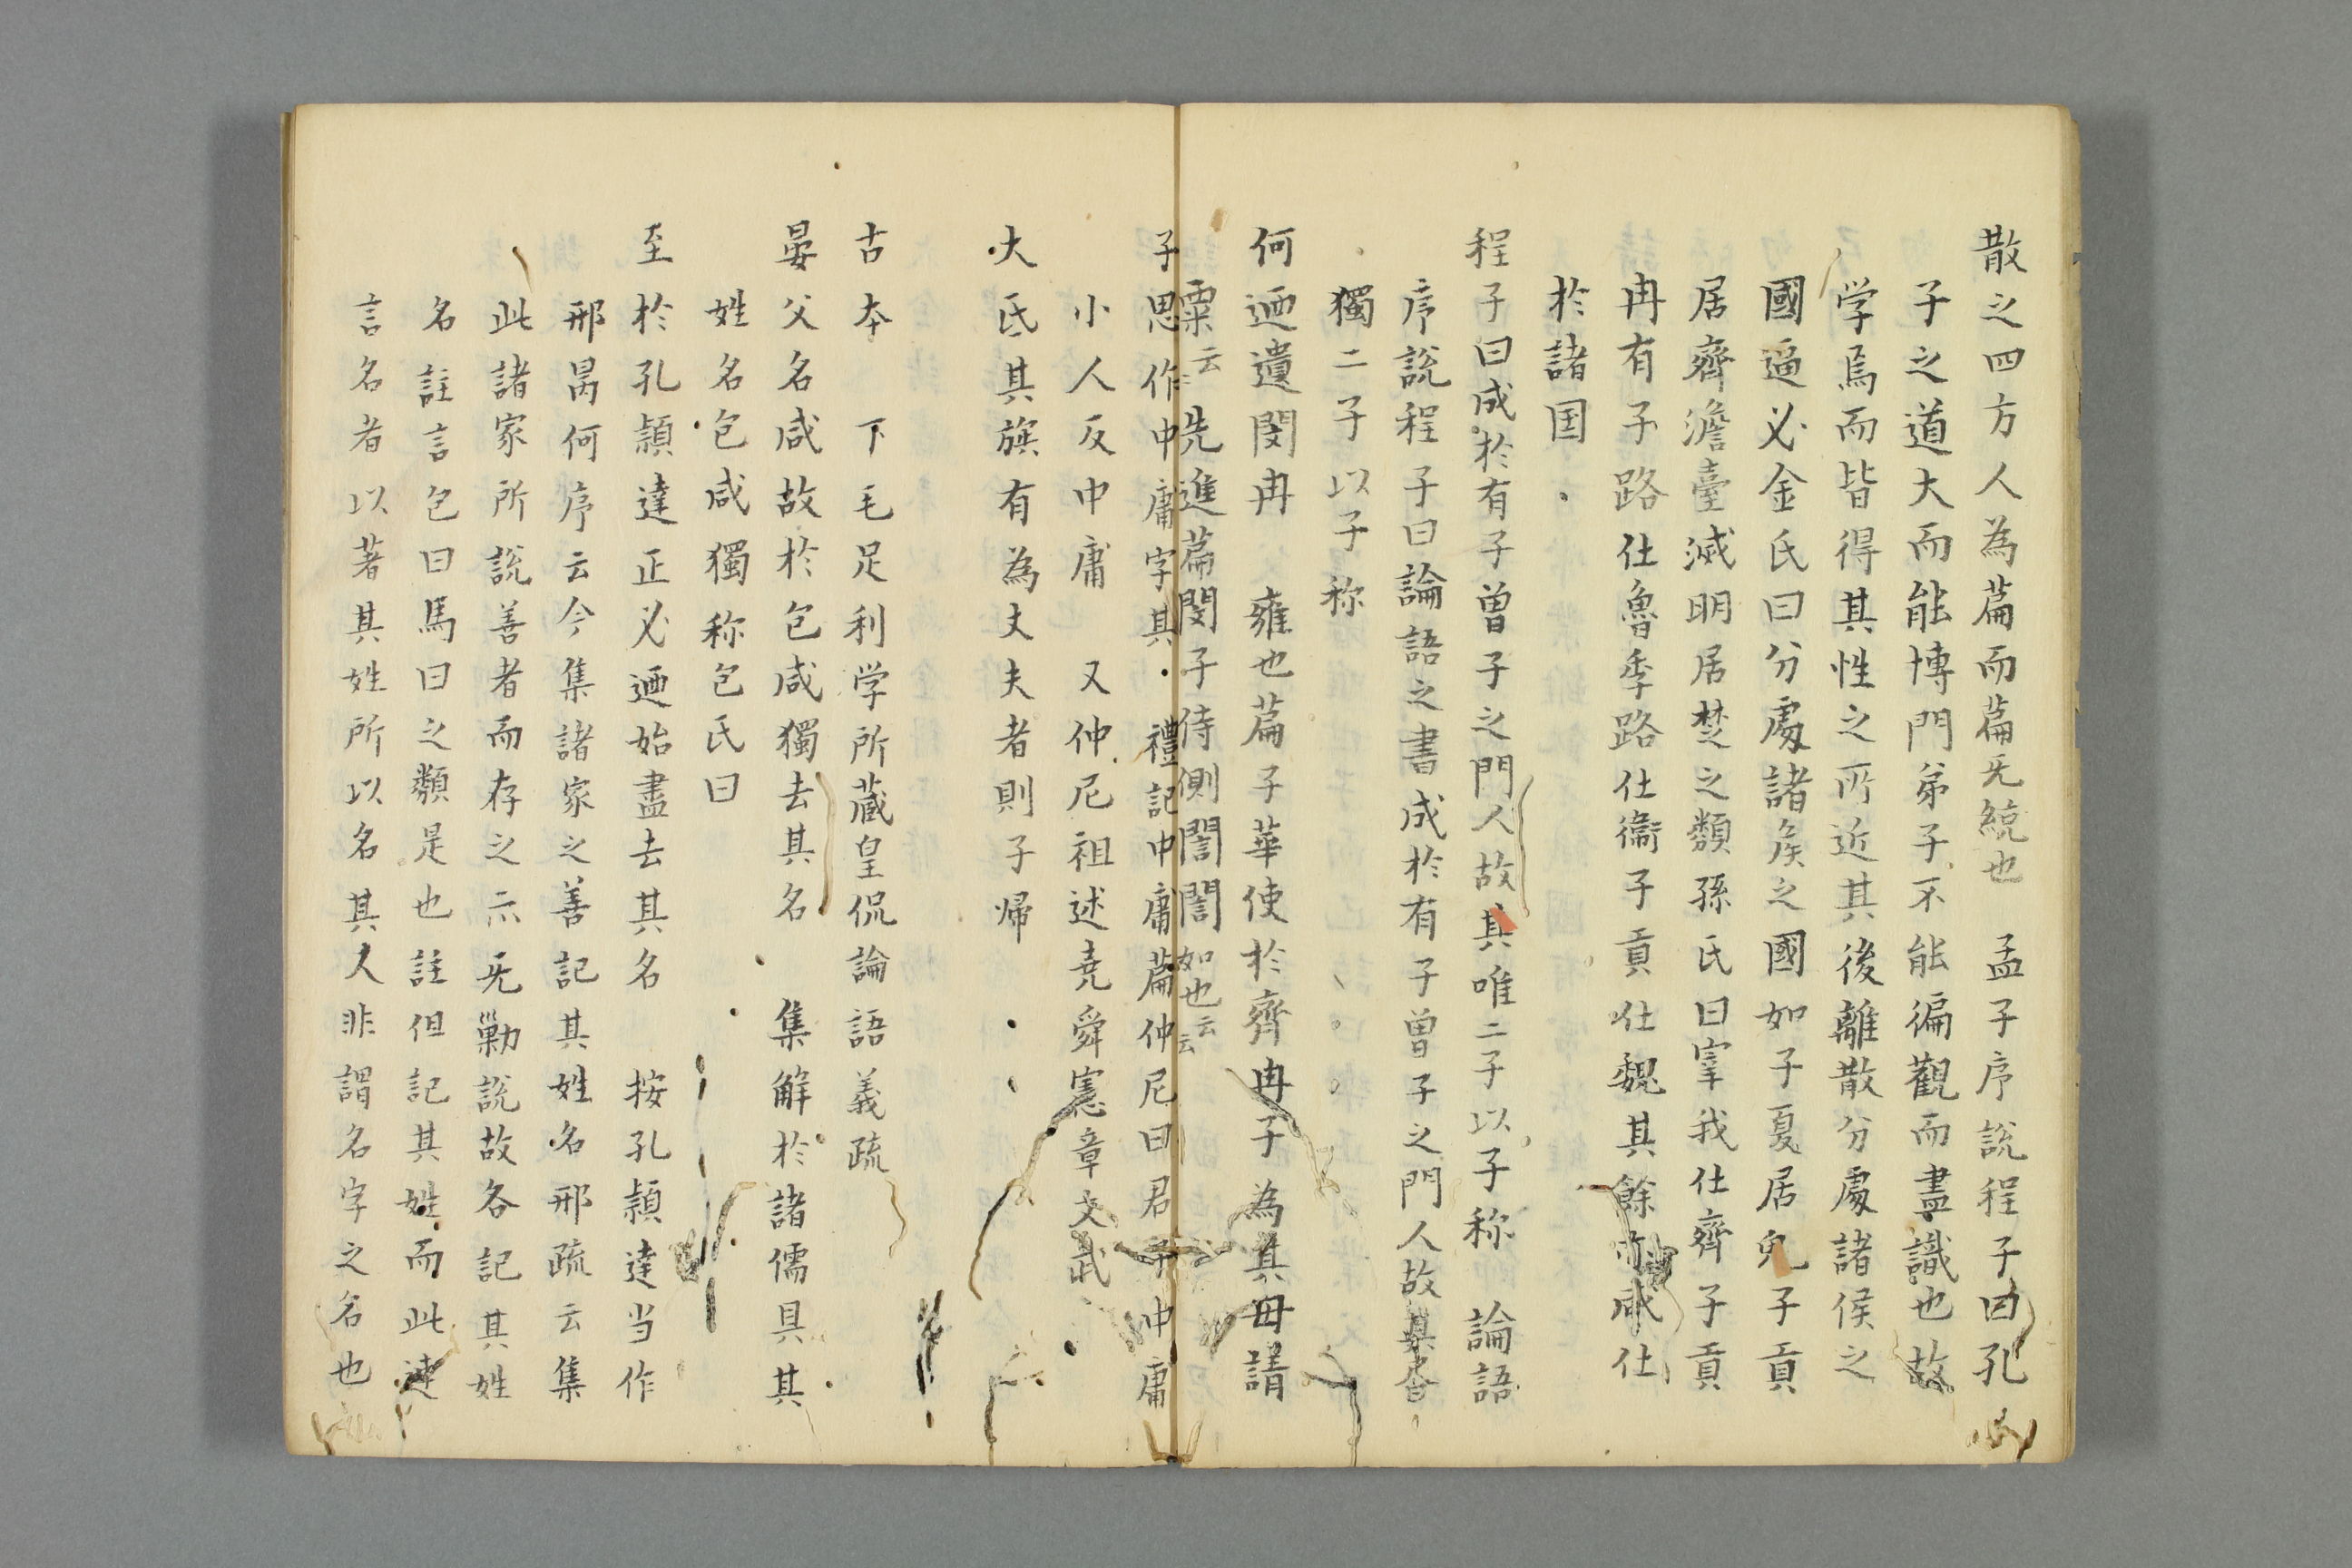 散之四方人為篇而篇无統也　孟子序説程子曰孔
子之道大而能博門弟子不能徧觀而盡識也故
学焉而皆得其性之所近其後離散分處諸侯之
國逼必金氏曰分處諸矦之國如子夏居　子貢
居齊澹臺滅明居楚之類孫氏曰宰我仕齊子貢
冉有子路仕魯季路仕衞子貢仕魏其餘　咸仕
於諸国
程子曰成於有子曽子之門人故其唯二子以子称　論語
序説程子曰論語之書成於有子曽子之門人故其書
獨二子以子称
何迺遺閔冉　雍也篇子華使於齊冉子為其母請
粟云　先進篇閔子侍側誾誾如也云云
子思作中庸字其　禮記中庸篇仲尼曰君子中庸
小人反中庸　又仲尼祖述尭舜憲章文武
大氐其旗有為丈夫者則子帰
古本　下毛足利学所蔵皇侃論語義疏
晏父名咸故於包咸獨去其名　集解於諸儒具其
姓名包咸獨称包氏曰
至於孔頴達正必迺始盡去其名　按孔頴達当作
邢昺何序云今集諸家之善記其姓名邢疏云集
此諸家所説善者而存之示无勦説故各記其姓
名註言包曰馬曰之類是也註但記其姓而此連
言名者以著其姓所以名其人非謂名字之名也